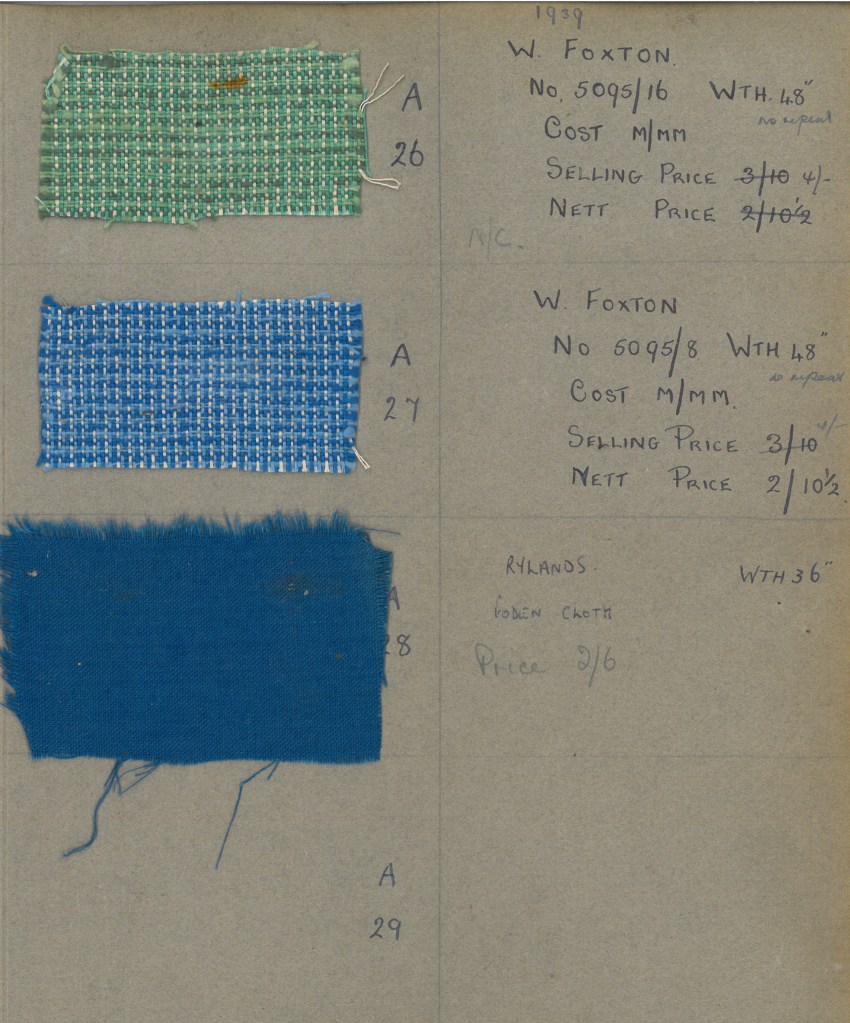 1939
A
26
W. FOXTON.
No. 5095/16 WTH. 48"
no repeat
COST M/MM
SELLING PRICE 3/10 4/-
NETT PRICE 2/10½
N/C.
A
27
W. FOXTON
No 5095/8 WTH 48"
no repeat
COST M/MM.
4/-
SELLING PRICE 3/10
NETT PRICE 2/10½
A
28
RYLANDS.
WTH 36"
CLOTH
Price 2/6
A
29